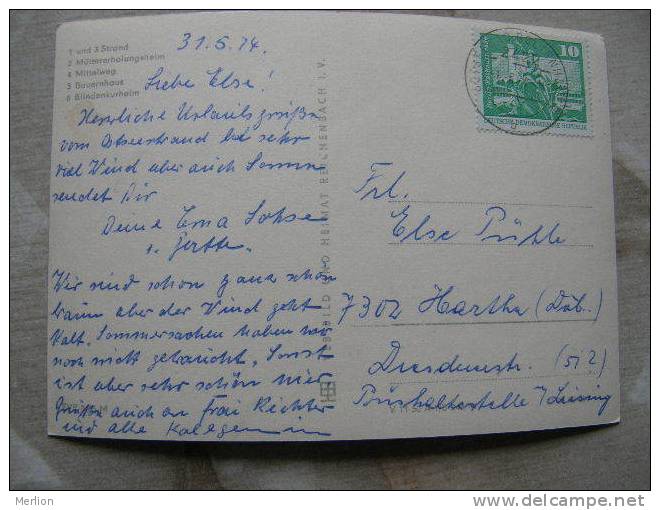 1 und 3 Strand
2 Müttererholungsheim
4 Mittelweg
5 Bauernhaus
6 Blindenkurheim
31.5.74.
Liebe Else!
Herzliche Urlaubsgrüße
vom Ostseestrand bei sehr
viel Wind aber auch Sonne
sendet Dir
Deine Erna Lohse
u.
Wir sind schon ganz schön
braun aber der Wind geht
kalt, Sommersachen haben wir
noch nicht gebraucht, Sonst
ist aber sehr schön hier
Grüße auch an Frau Richter
und alle Kolegen
BILD UND HEIMAT REICHENBACH I. V.
10
DEUTSCHE DEMOKRATISCHE REPUBLIK
Frl.
Else
7302 Hartha (Döb.
Dresdenerstr.
Bushaltestelle
Merlion
www.delcampe.net